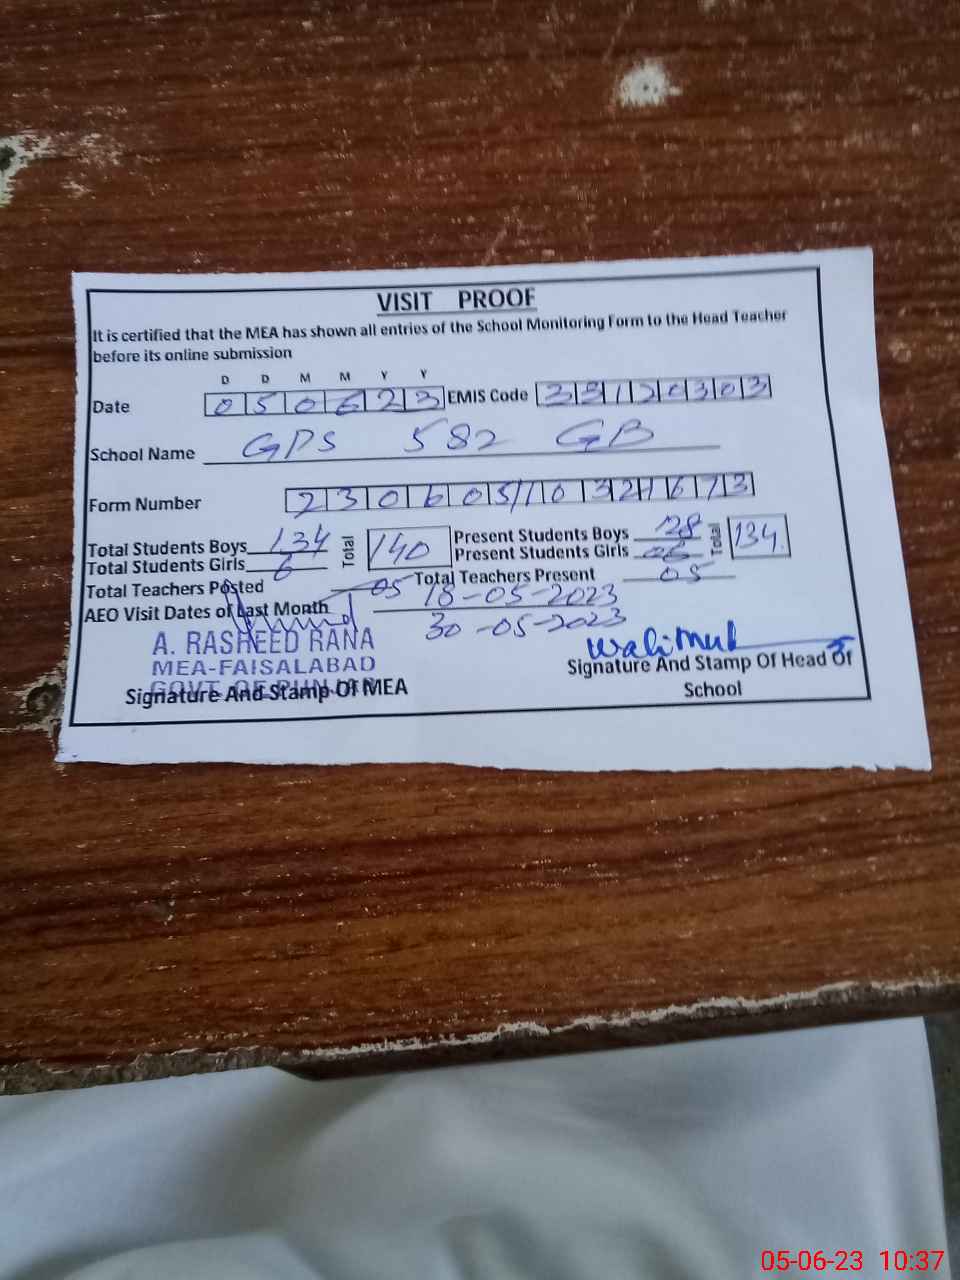 VISIT PROOF
It is certified that the MEA has shown all entries of the School Monitoring Form to the Head Teacher
before its online submission
D D M M Y Y
Date 050623 EMIS Code 33120303
School Name GPS 582 GB
Form Number
Total Students Boys 134 Total 140 Present Students Boys 128 Total 134
Total Students Girls 6 Present Students Girls 06
Total Teachers Posted 05 Total Teachers Present 05
AEO Visit Dates of Last Month 18-05-2023
30-05-2023
A. RASHEED RANA
MEA-FAISALABAD
GOVT. OF PUNJAB
Signature And Stamp Of MEA
Signature And Stamp Of Head Of
School
05-06-23 10:37